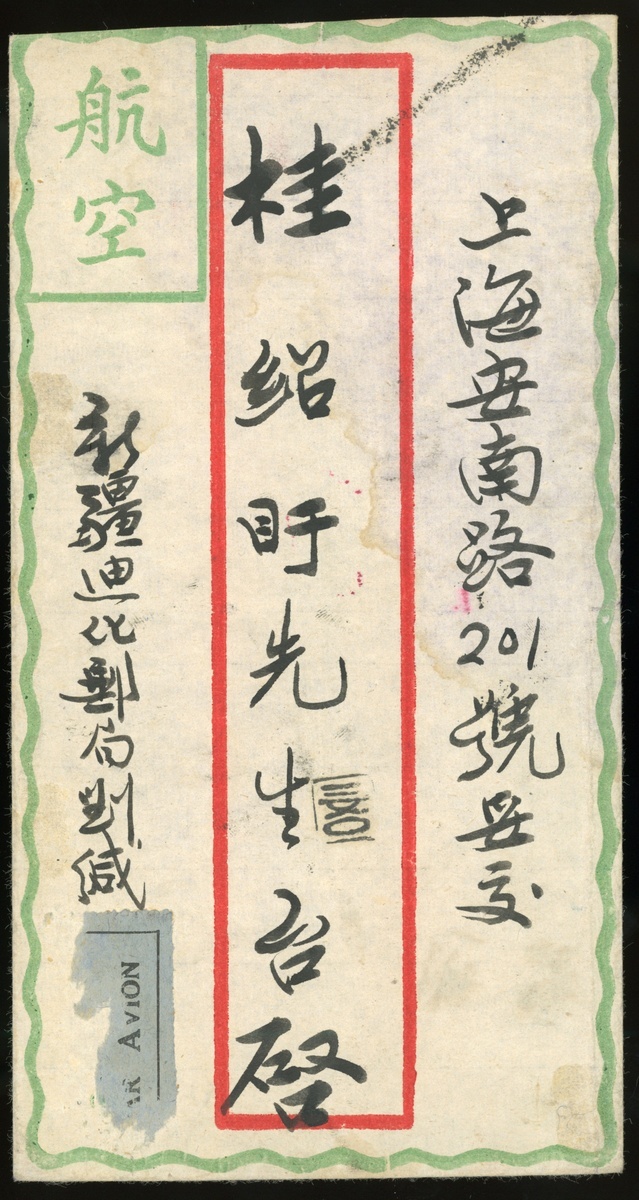 上海安南路201號妥交
桂紹盱先生台啓
航空
新疆迪化郵局劉緘
AR AVION